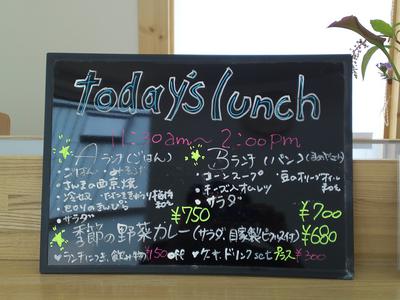 today's lunch
11:30am〜2:00pm
Aランチ(ごはん)
・ごはん・みそ汁
・さんまの西京焼
・冷奴
・セロリのきんぴら
・サラダ
¥750
Bランチ(パン)
・コーンスープ
・チーズ入オムレツ
・サラダ
・豆のオリーブオイル
¥700
季節の野菜カレー(サラダ、自家製ピクルス付) ¥680
♥ランチにつき、飲み物¥50off ♥ケーキ、ドリンクset プラス¥300